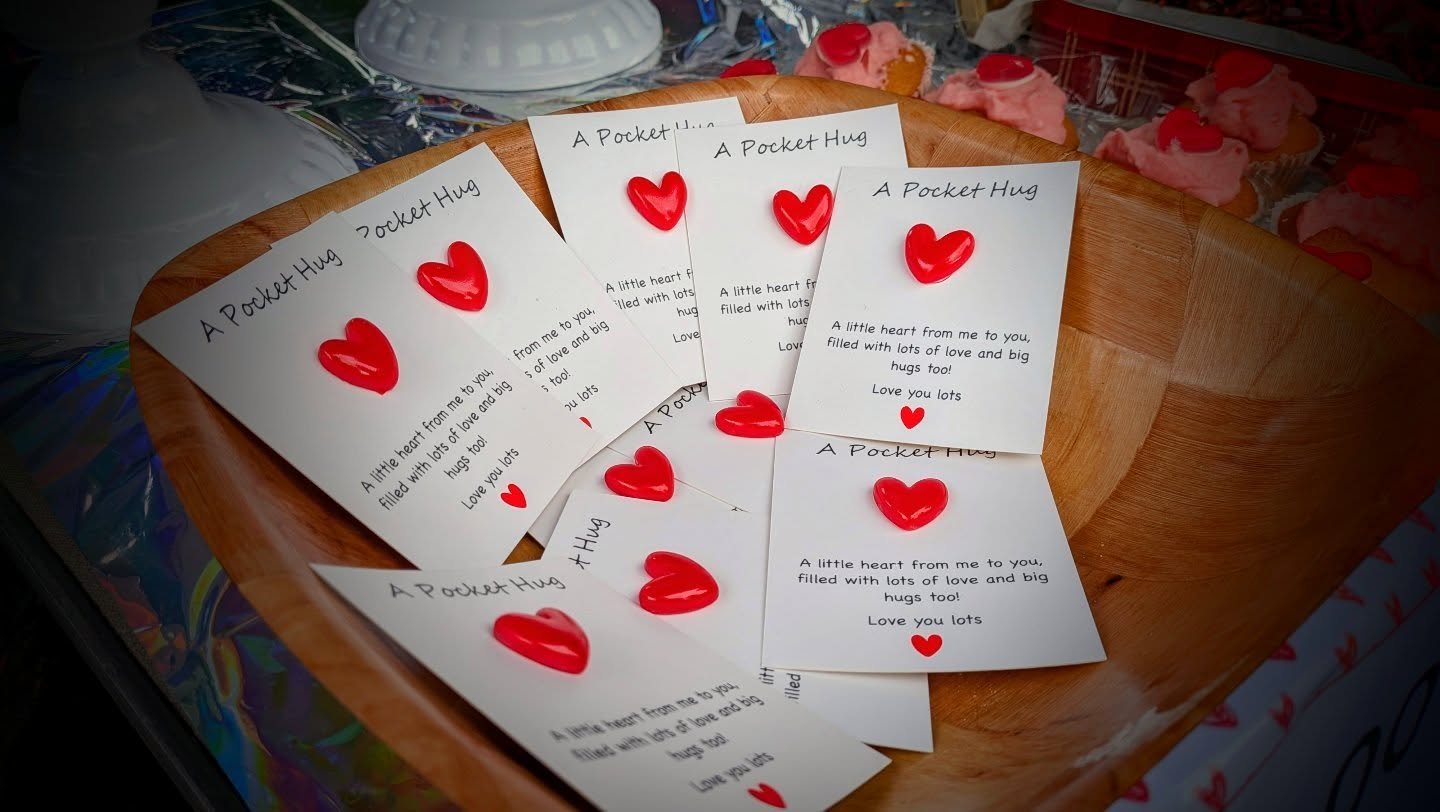 A Pocket Hug
A little heart from me to you,
filled with lots of love and big
hugs too!
Love you lots
Pocket Hug
from me to you,
of love and big
too!
lots
A Pocket Hug
A little heart
filled with lots
hug
Love
A Pocket Hug
A little heart
filled with lots
hug
Love
A Pocket Hug
A little heart from me to you,
filled with lots of love and big
hugs too!
Love you lots
A Pock
Hug
A Pocket Hug
A little heart from me to you,
filled with lots of love and big
hugs too!
Love you lots
A Pocket Hug
A little heart from me to you,
filled with lots of love and big
hugs too!
Love you lots